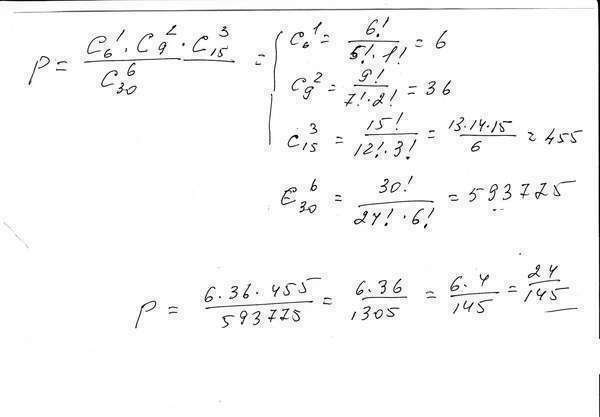 P = (C₆¹ · C₉² · C₁₅³) / C₃₀⁶ = { C₆¹ = 6! / (5! · 1!) = 6
C₉² = 9! / (7! · 2!) = 36
C₁₅³ = 15! / (12! · 3!) = (13·14·15) / 6 = 455
C₃₀⁶ = 30! / (24! · 6!) = 593775
P = (6·36·455) / 593775 = (6·36) / 1305 = (6·4) / 145 = 24 / 145